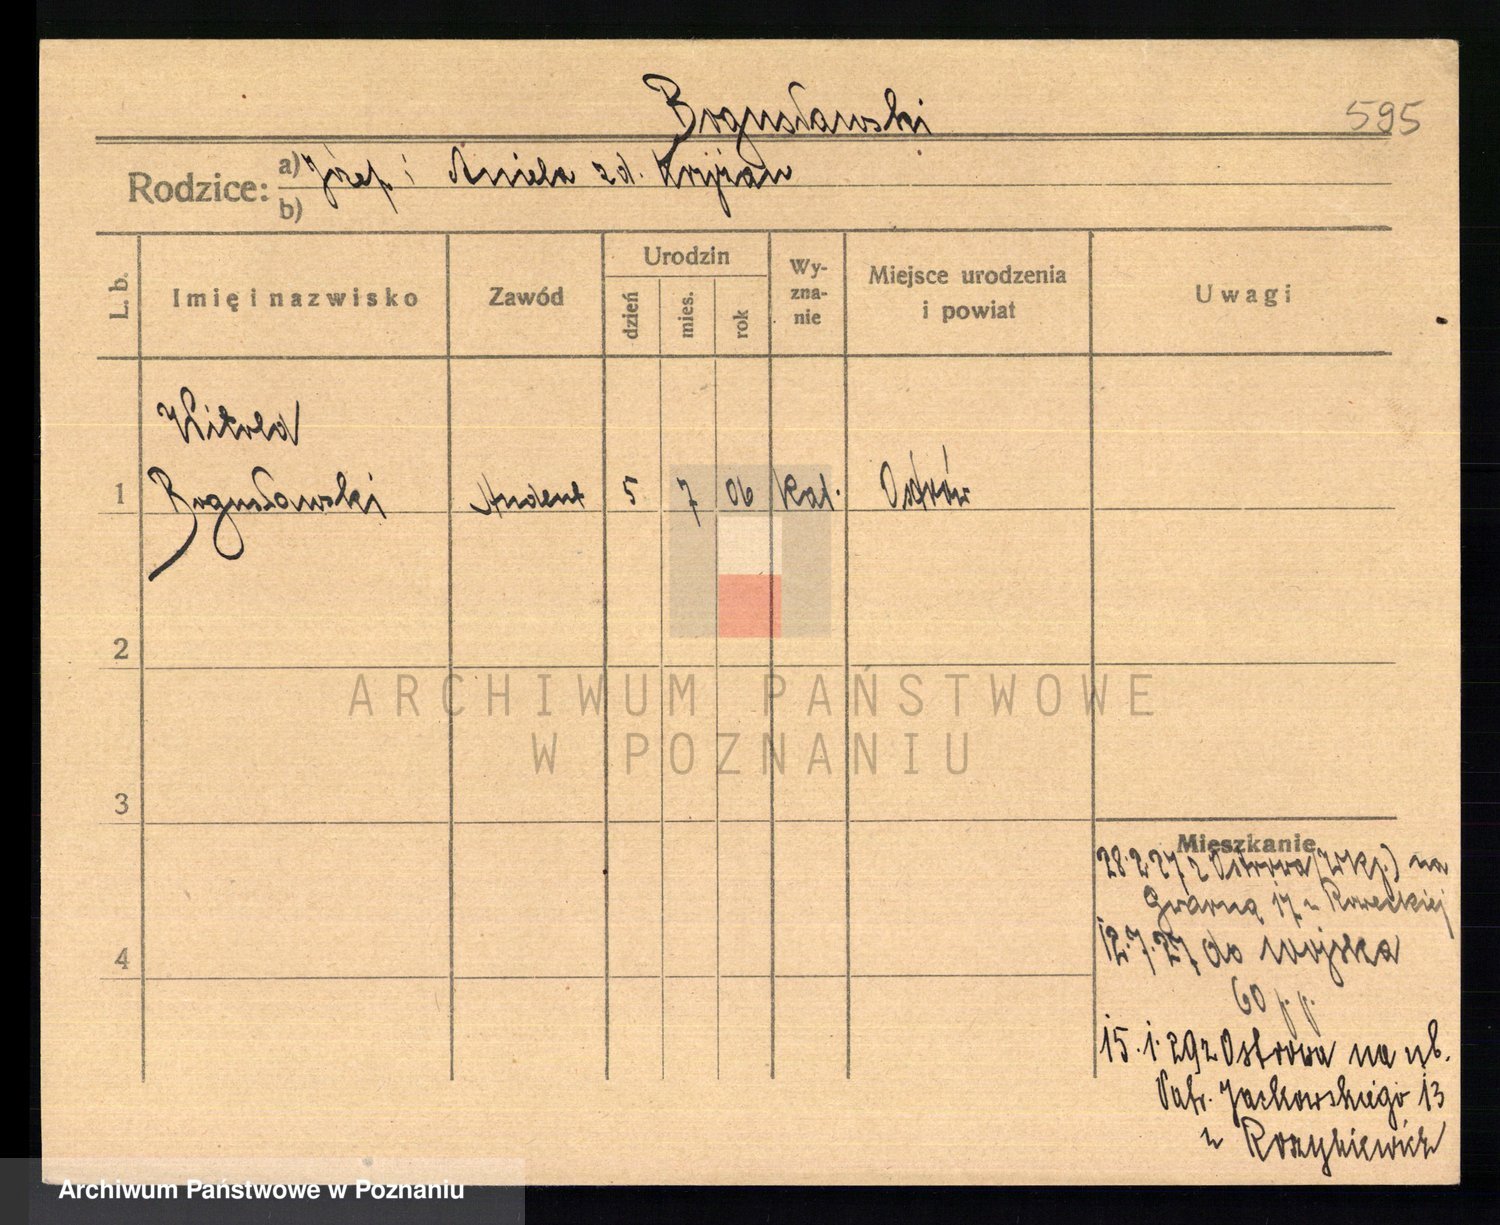 Bogusławski
595
Rodzice: a) Józef i Aniela zd. Krzyżan
b)
L. b.
Imię i nazwisko
Zawód
Urodzin
dzień
mies.
rok
Wy-
zna-
nie
Miejsce urodzenia
i powiat
Uwagi
Witold
1 Bogusławski student 5 7 06 kat. Ostrów
2
ARCHIWUM PAŃSTWOWE
W POZNANIU
3
Mieszkanie
28.2.27 z Ostrowa (Wlkp.) na
Gwarną 17 u
4
12.7.27 do wojska
60 p.p.
15.1.29 z Ostrowa na ul.
Patr. Jackowskiego 13
u
Archiwum Państwowe w Poznaniu